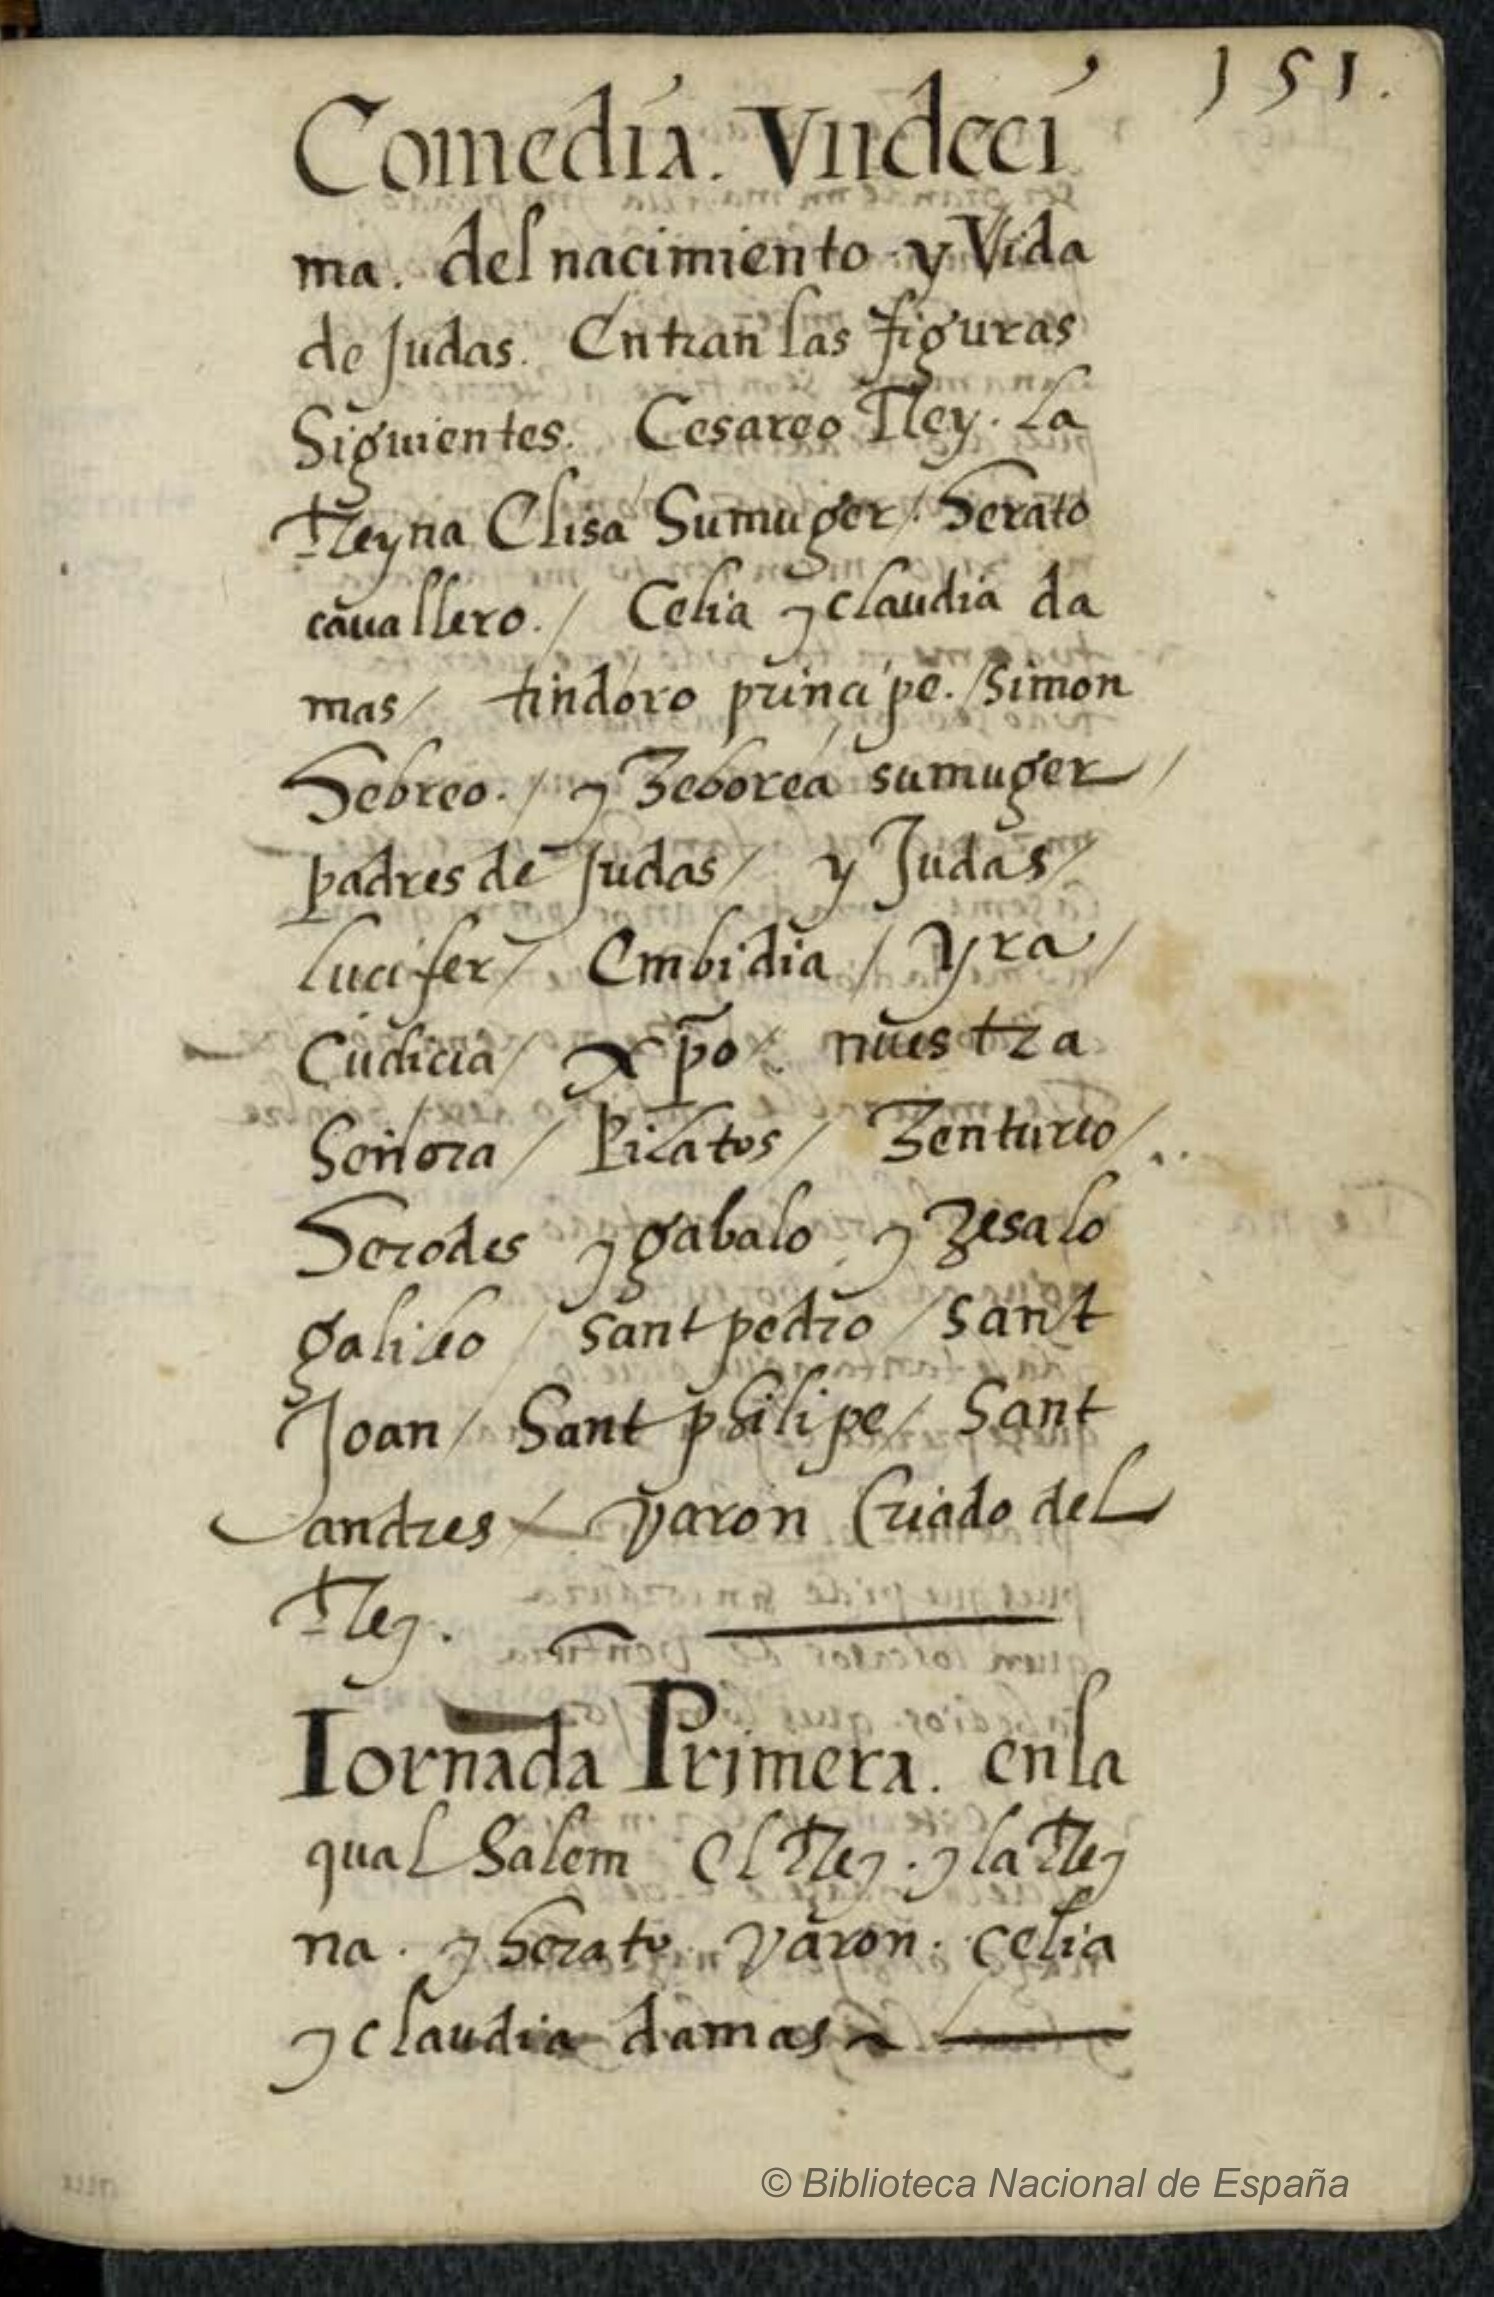 151.
Comedia. Vndeci
ma. del nacimiento y Vida
de Judas. Entran las figuras
Siguientes. Cesareo Rey. la
Reyna Elisa Sumuger /. Herato
cauallero. / Celia y claudia da
mas / tindoro principe. / Simon
Hebreo. / y Zeborea sumuger /
padres de Judas / y Judas /
lucifer / Embidia / Yra /
Cudicia / xp̄o /. nuestra
Señora / Pilatos / Zenturio / ..
Herodes y gabalo y Zesalo
galileo / sant pedro / sant
Joan / Sant philipe / Sant
andres / Varon Criado del
Rey.
Iornada Primera. en la
qual Salem El Rey. y la Rey
na. y Herato. Varon. Celia
y claudia damas
© Biblioteca Nacional de España